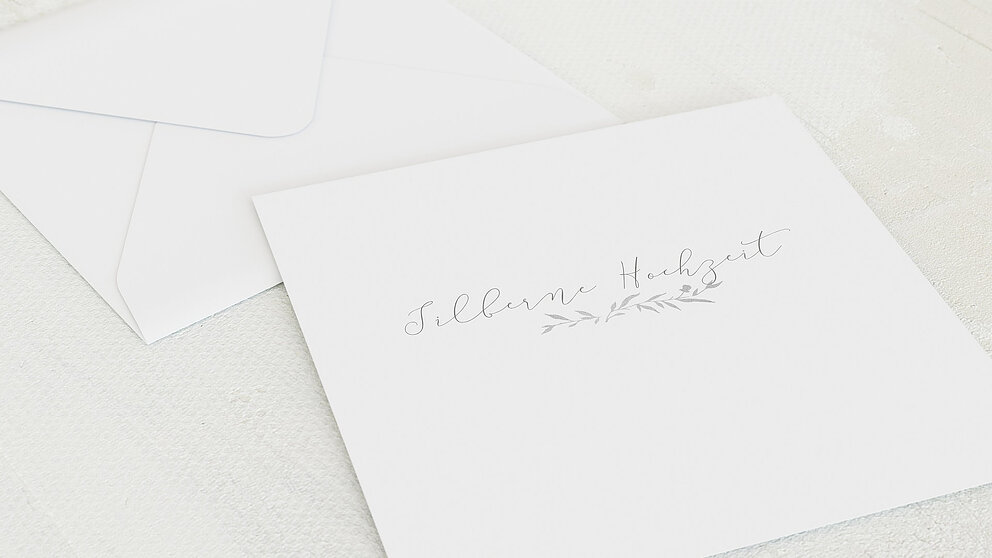 Silberne Hochzeit